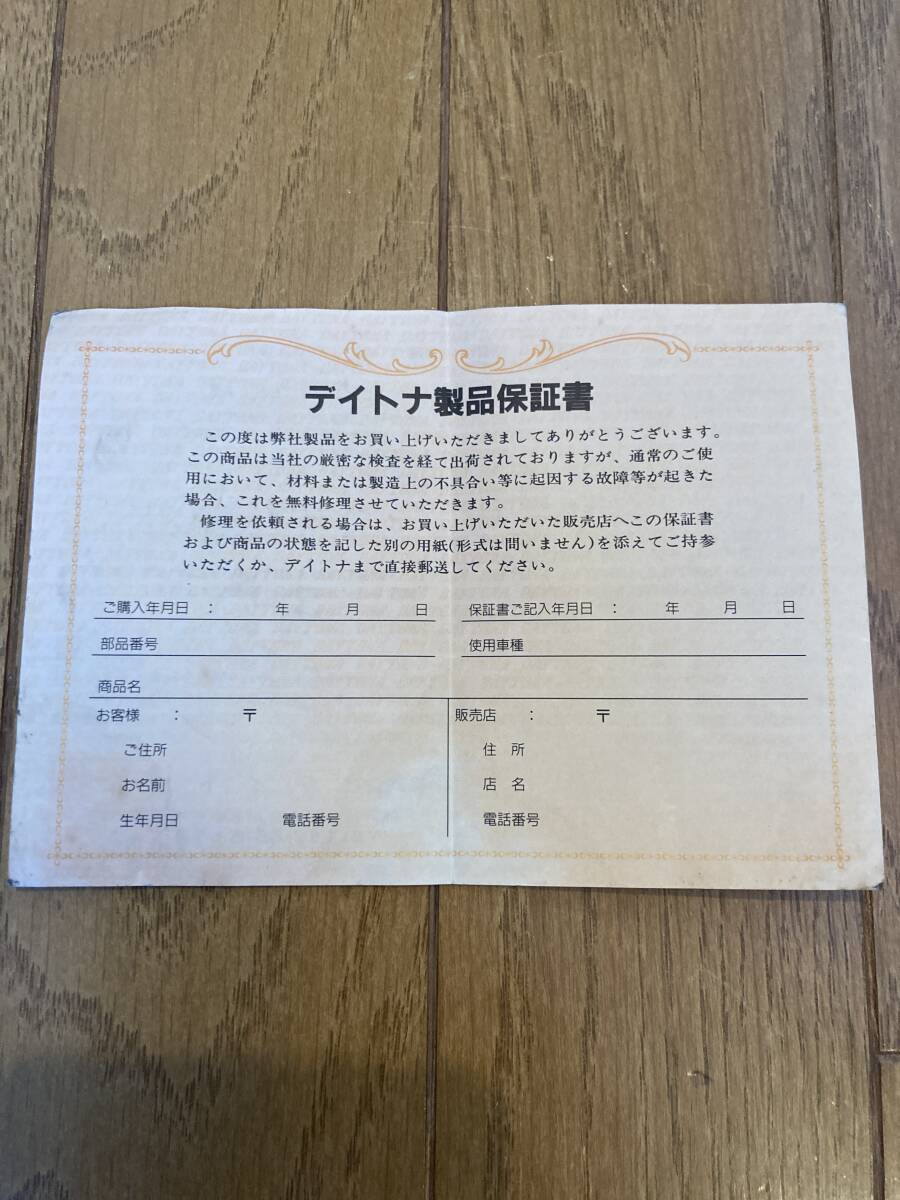 デイトナ製品保証書
この度は弊社製品をお買い上げいただきましてありがとうございます。
この商品は当社の厳密な検査を経て出荷されておりますが、通常のご使
用において、材料または製造上の不具合い等に起因する故障等が起きた
場合、これを無料修理させていただきます。
修理を依頼される場合は、お買い上げいただいた販売店へこの保証書
および商品の状態を記した別の用紙(形式は問いません)を添えてご持参
いただくか、デイトナまで直接郵送してください。
ご購入年月日 : 年 月 日 保証書ご記入年月日 : 年 月 日
部品番号 使用車種
商品名
お客様 : 〒 販売店 : 〒
ご住所 住 所
お名前 店 名
生年月日 電話番号 電話番号